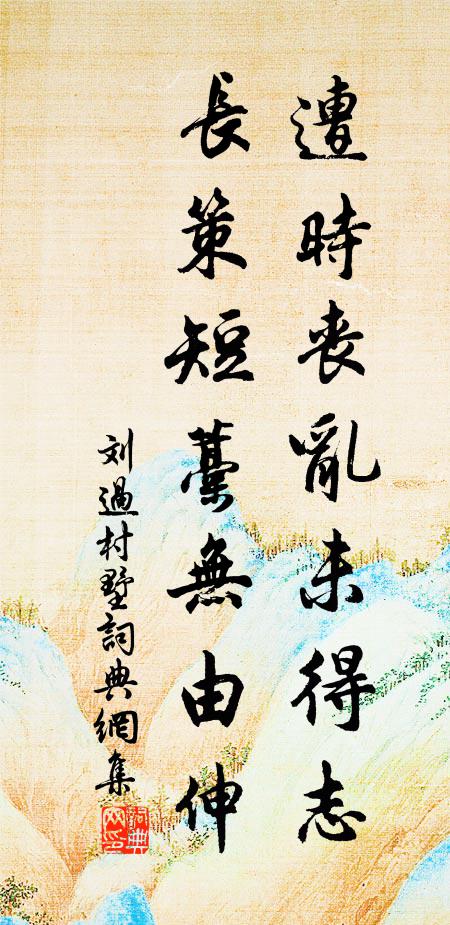 遭時喪亂未得志
長策短藁無由伸
刘過村墅詞典網集
詞典网印